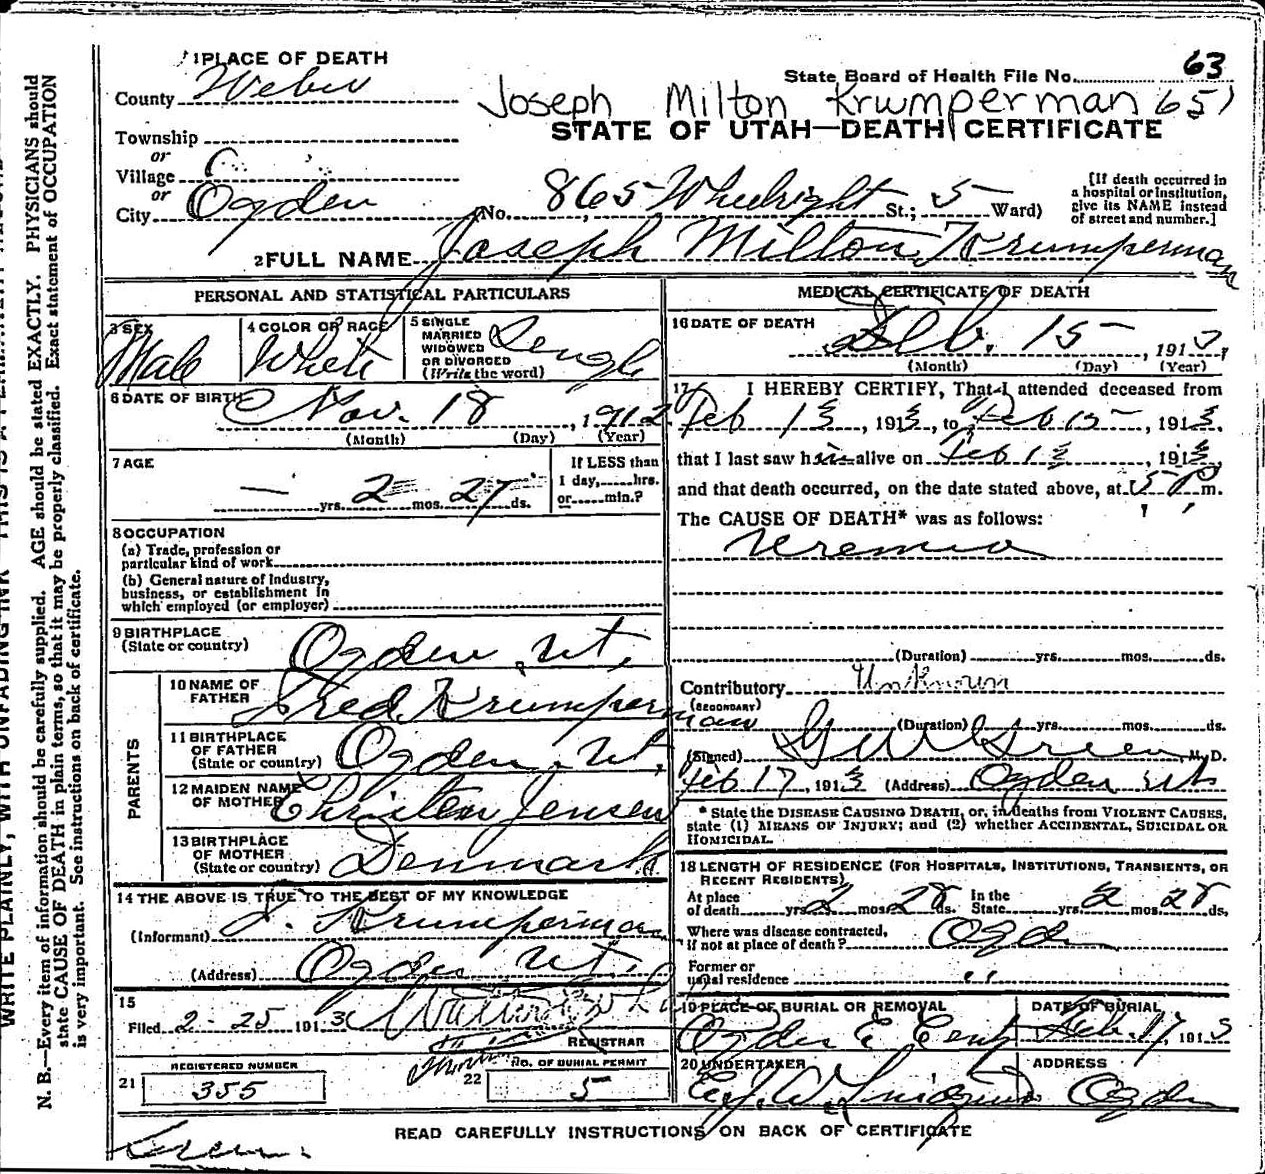 1 PLACE OF DEATH
County Weber
State Board of Health File No. 63
Joseph Milton Krumperman 651
STATE OF UTAH—DEATH CERTIFICATE
Township
or
Village
or
City Ogden
(No. 865 Wheelright St.; 5 Ward)
[If death occurred in
a hospital or institution,
give its NAME instead
of street and number.]
2 FULL NAME Joseph Milton Krumperman
PERSONAL AND STATISTICAL PARTICULARS
3 SEX
Male
4 COLOR OR RACE
White
5 SINGLE
MARRIED
WIDOWED
OR DIVORCED
(Write the word)
Single
6 DATE OF BIRTH
Nov. 18, 1912
(Month) (Day) (Year)
7 AGE
— yrs. 2 mos. 27 ds.
If LESS than
1 day,......hrs.
or......min.?
8 OCCUPATION
(a) Trade, profession or
particular kind of work
(b) General nature of industry,
business, or establishment in
which employed (or employer)
9 BIRTHPLACE
(State or country)
Ogden, Ut.
PARENTS
10 NAME OF
FATHER
Fred Krumperman
11 BIRTHPLACE
OF FATHER
(State or country)
Ogden, Ut.
12 MAIDEN NAME
OF MOTHER
Christen Jensen
13 BIRTHPLACE
OF MOTHER
(State or country)
Denmark
14 THE ABOVE IS TRUE TO THE BEST OF MY KNOWLEDGE
(Informant) Krumperman
(Address) Ogden Ut.
15
Filed 2-25 1913
REGISTRAR
REGISTERED NUMBER
21 355
NO. OF BURIAL PERMIT
22 5
MEDICAL CERTIFICATE OF DEATH
16 DATE OF DEATH
Feb. 15, 1913
(Month) (Day) (Year)
17 I HEREBY CERTIFY, That I attended deceased from
Feb 13, 1913, to Feb 15, 1913,
that I last saw him alive on Feb 13, 1913,
and that death occurred, on the date stated above, at 5 P m.
The CAUSE OF DEATH* was as follows:
Uremia
(Duration) yrs. mos. ds.
Contributory Unknown
(SECONDARY)
(Duration) yrs. mos. ds.
(Signed) G W Green M. D.
Feb 17, 1913 (Address) Ogden Ut
* State the DISEASE CAUSING DEATH, or, in deaths from VIOLENT CAUSES,
state (1) MEANS OF INJURY; and (2) whether ACCIDENTAL, SUICIDAL OR
HOMICIDAL.
18 LENGTH OF RESIDENCE (FOR HOSPITALS, INSTITUTIONS, TRANSIENTS, OR
RECENT RESIDENTS)
At place
of death yrs. 2 mos. 28 ds. In the
State yrs. 2 mos. 28 ds.
Where was disease contracted,
if not at place of death? Ogden
Former or
usual residence " "
19 PLACE OF BURIAL OR REMOVAL
Ogden Cemy
DATE OF BURIAL
Feb. 17, 1913
20 UNDERTAKER
ADDRESS
Ogden
READ CAREFULLY INSTRUCTIONS ON BACK OF CERTIFICATE
N. B.—Every item of information should be carefully supplied. AGE should be stated EXACTLY. PHYSICIANS should
state CAUSE OF DEATH in plain terms, so that it may be properly classified. Exact statement of OCCUPATION
is very important. See instructions on back of certificate.